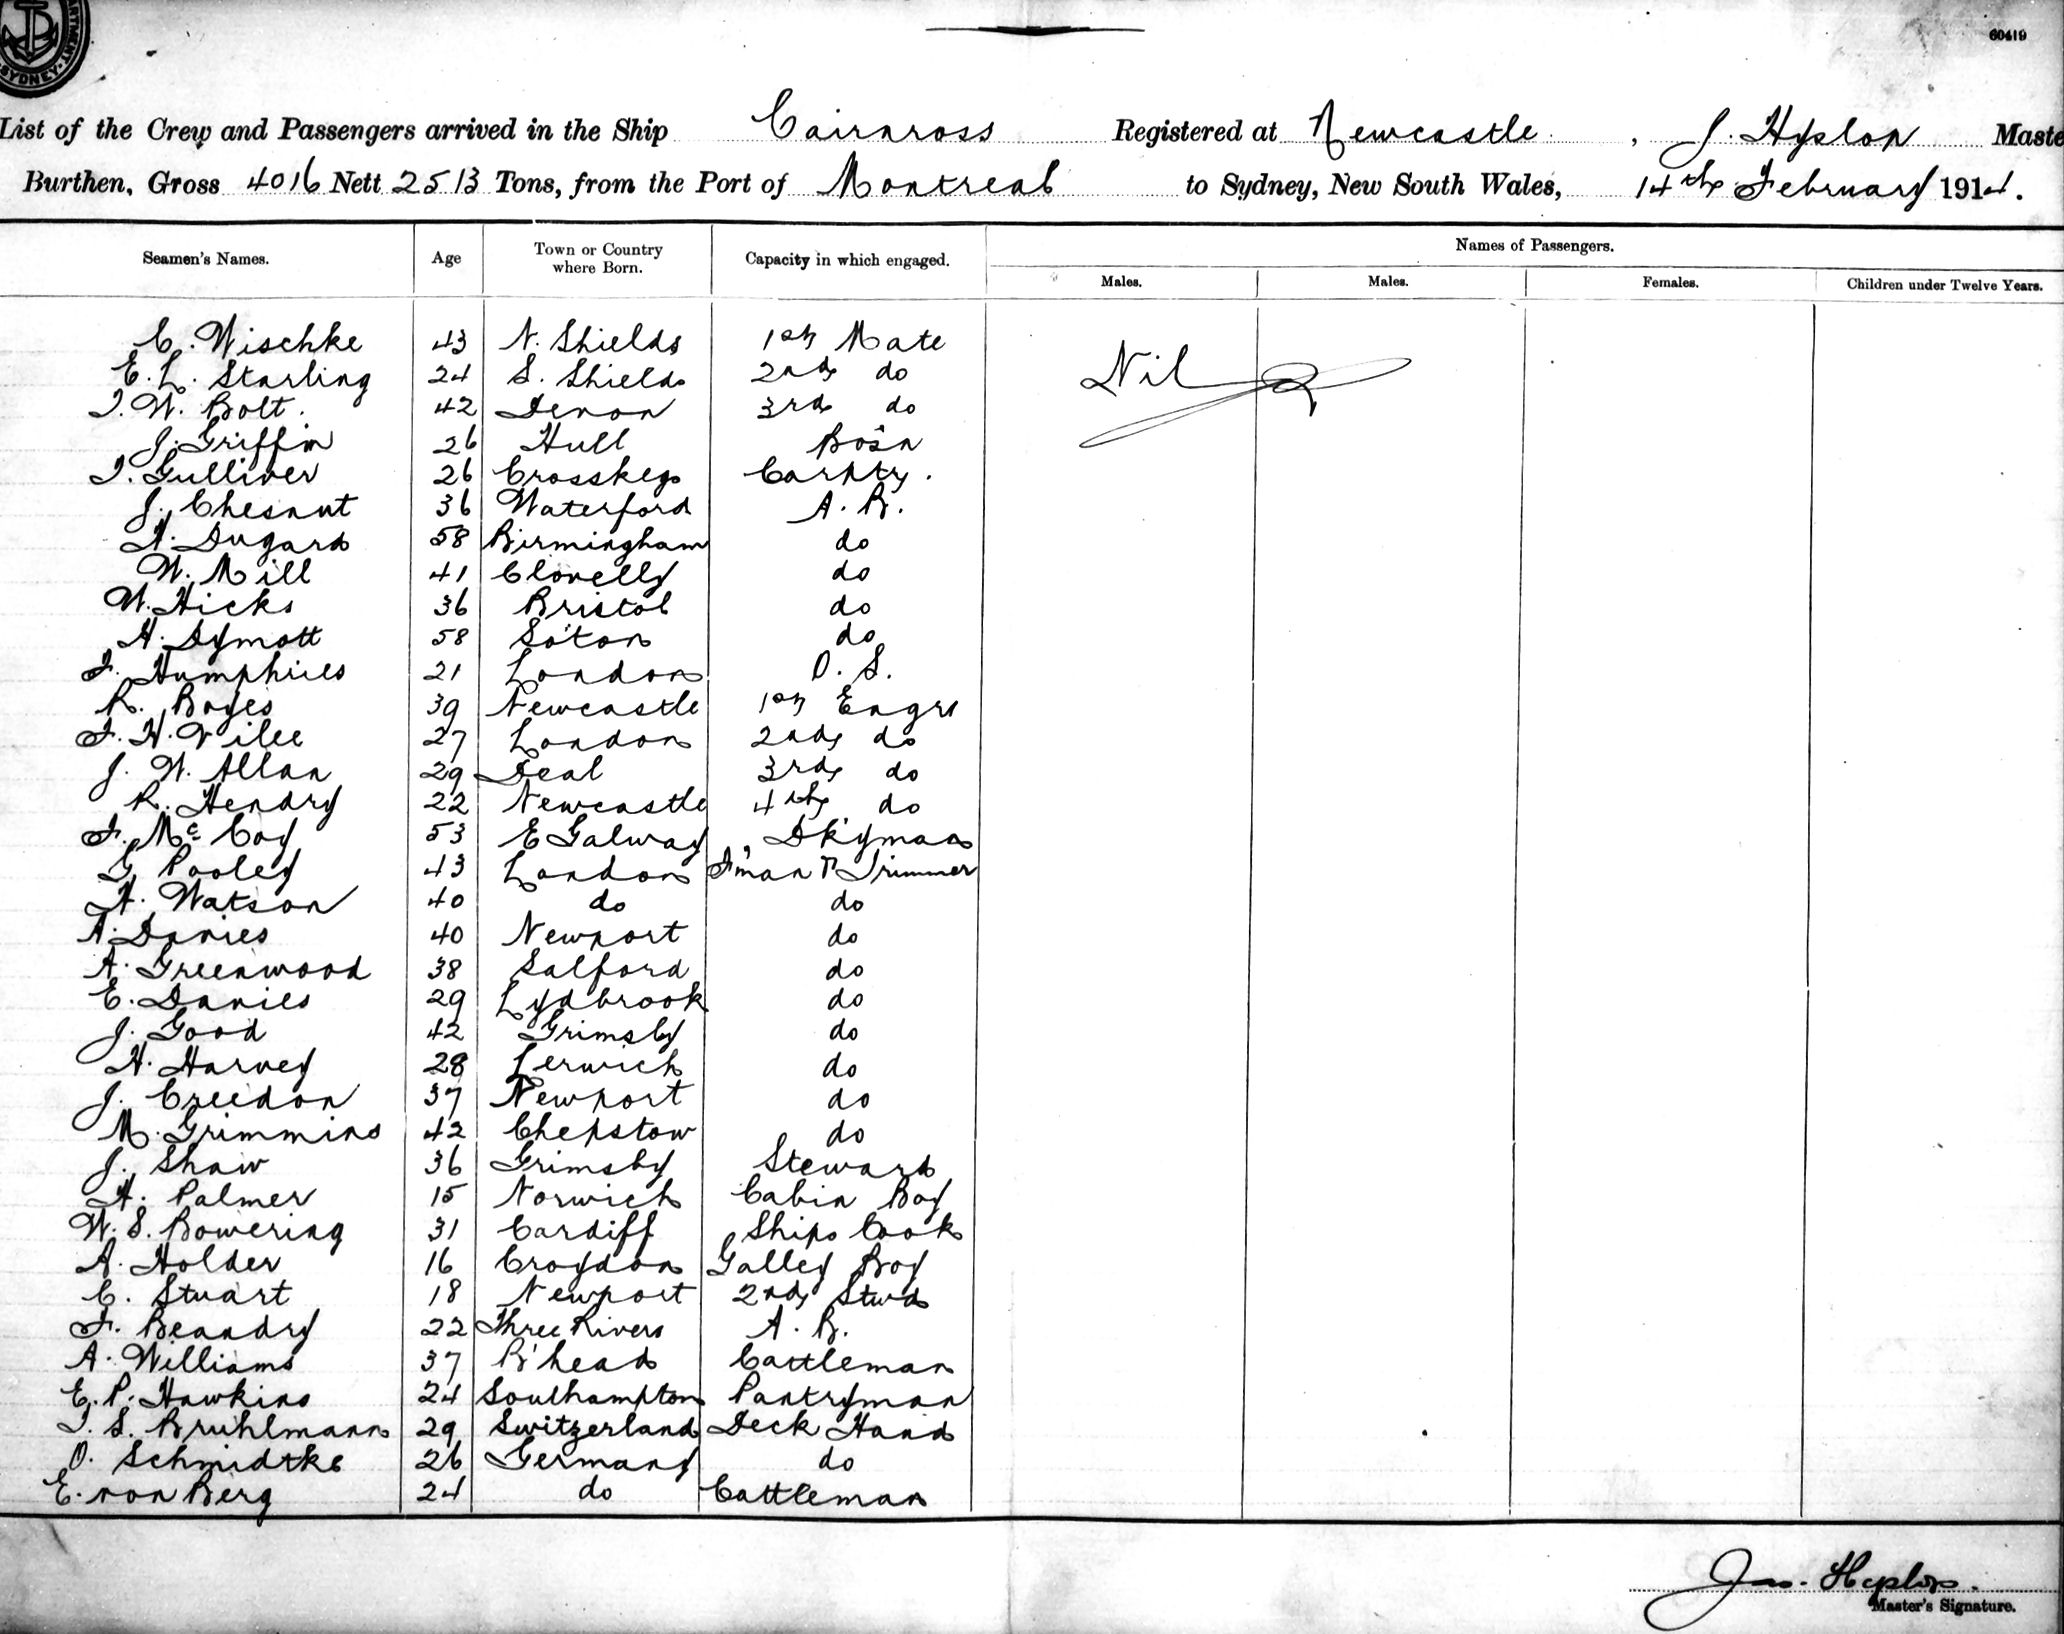 SYDNEY
60419
List of the Crew and Passengers arrived in the Ship Cairnross Registered at Newcastle, J. Hyslop Maste
Burthen, Gross 4016 Nett 2513 Tons, from the Port of Montreal to Sydney, New South Wales, 14th February 1914.
Seamen's Names. Age Town or Country where Born. Capacity in which engaged. Names of Passengers.
Males. Males. Females. Children under Twelve Years.
C. Wischke 43 N. Shields 1st Mate Nil
E. L. Starling 24 S. Shields 2nd do
T. W. Bolt. 42 Devon 3rd do
J. Griffin 26 Hull Bosn
T. Gulliver 26 Crosskeys Carptr.
J. Chesnut 36 Waterford A. B.
H. Dugard 58 Birmingham do
W. Mill 41 Clovelly do
W. Hicks 36 Bristol do
H. Dymott 58 So'ton do
F. Humphries 21 London O. S.
R. Boyes 39 Newcastle 1st Engr
F. H. Vilee 27 London 2nd do
J. W. Allan 29 Deal 3rd do
R. Hendry 22 Newcastle 4th do
F. Mc Coy 53 E Galway Dkyman
G. Pooley 43 London F'man & Trimmer
H. Watson 40 do do
A. Davies 40 Newport do
A. Greenwood 38 Salford do
E. Davies 29 Lydbrook do
J. Good 42 Grimsby do
H. Harvey 28 Lerwick do
J. Creedon 37 Newport do
M. Grimmins 42 Chepstow do
J. Shaw 36 Grimsby Steward
H. Palmer 15 Norwich Cabin Boy
W. S. Bowering 31 Cardiff Ships Cook
A. Holder 16 Croydon Galley Boy
C. Stuart 18 Newport 2nd Stwd
F. Beandry 22 Three Rivers A. B.
A. Williams 37 B'head Cattleman
E. P. Hawkins 24 Southampton Pantryman
T. S. Bruhlmann 29 Switzerland Deck Hand
O. Schmidtke 26 Germany do
E. von Berg 24 do Cattleman
Jas. Hyslop.
Master's Signature.